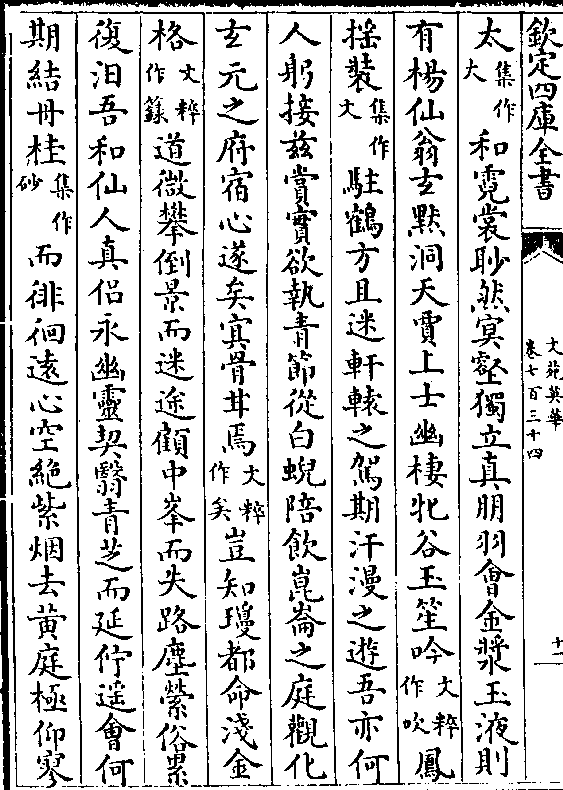 欽定四庫全書
文苑英華
卷七百三十四
十一
太集作大和霓裳眇然冥壑獨立真朋羽會金漿玉液則
有楊仙翁玄默洞天賈上士幽棲牝谷玉笙吟文粹作吹鳳
搖裝集作文駐鶴方且迷軒轅之駕期汗漫之遊吾亦何
人躬接茲賞實欲執青節從白蜺陪飲崑崙之庭觀化
玄元之府宿心遂矣冥骨甘焉文粹作矣豈知瓊都命淺金
格文粹作籙道微攀倒景而迷途顧中峯而失路塵縈俗累
復汨吾和仙人真侣永幽靈契翳青芝而延佇遥會何
期結丹桂集作砂而徘徊遠心空絶紫烟去黄庭極仰寥